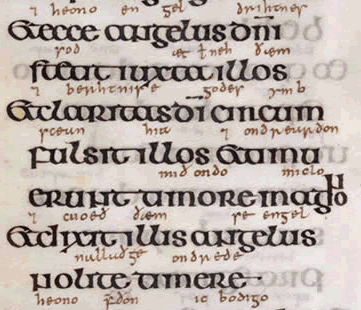 ⁊ heono engel drihtnes
&ecce angelus dni
stod æt ł neh ðæm
stetit iuxta illos
⁊ berhtnise godes ymb
&claritas di circum
scean hia ⁊ ondreardon
fulsit illos &timu
mið ondo miclo
erunt timore magno
⁊ cuoeð ðæm se engel
&dixit illis angelus
nalladge ondrede
nolite timere
heono fdon ic bodigo